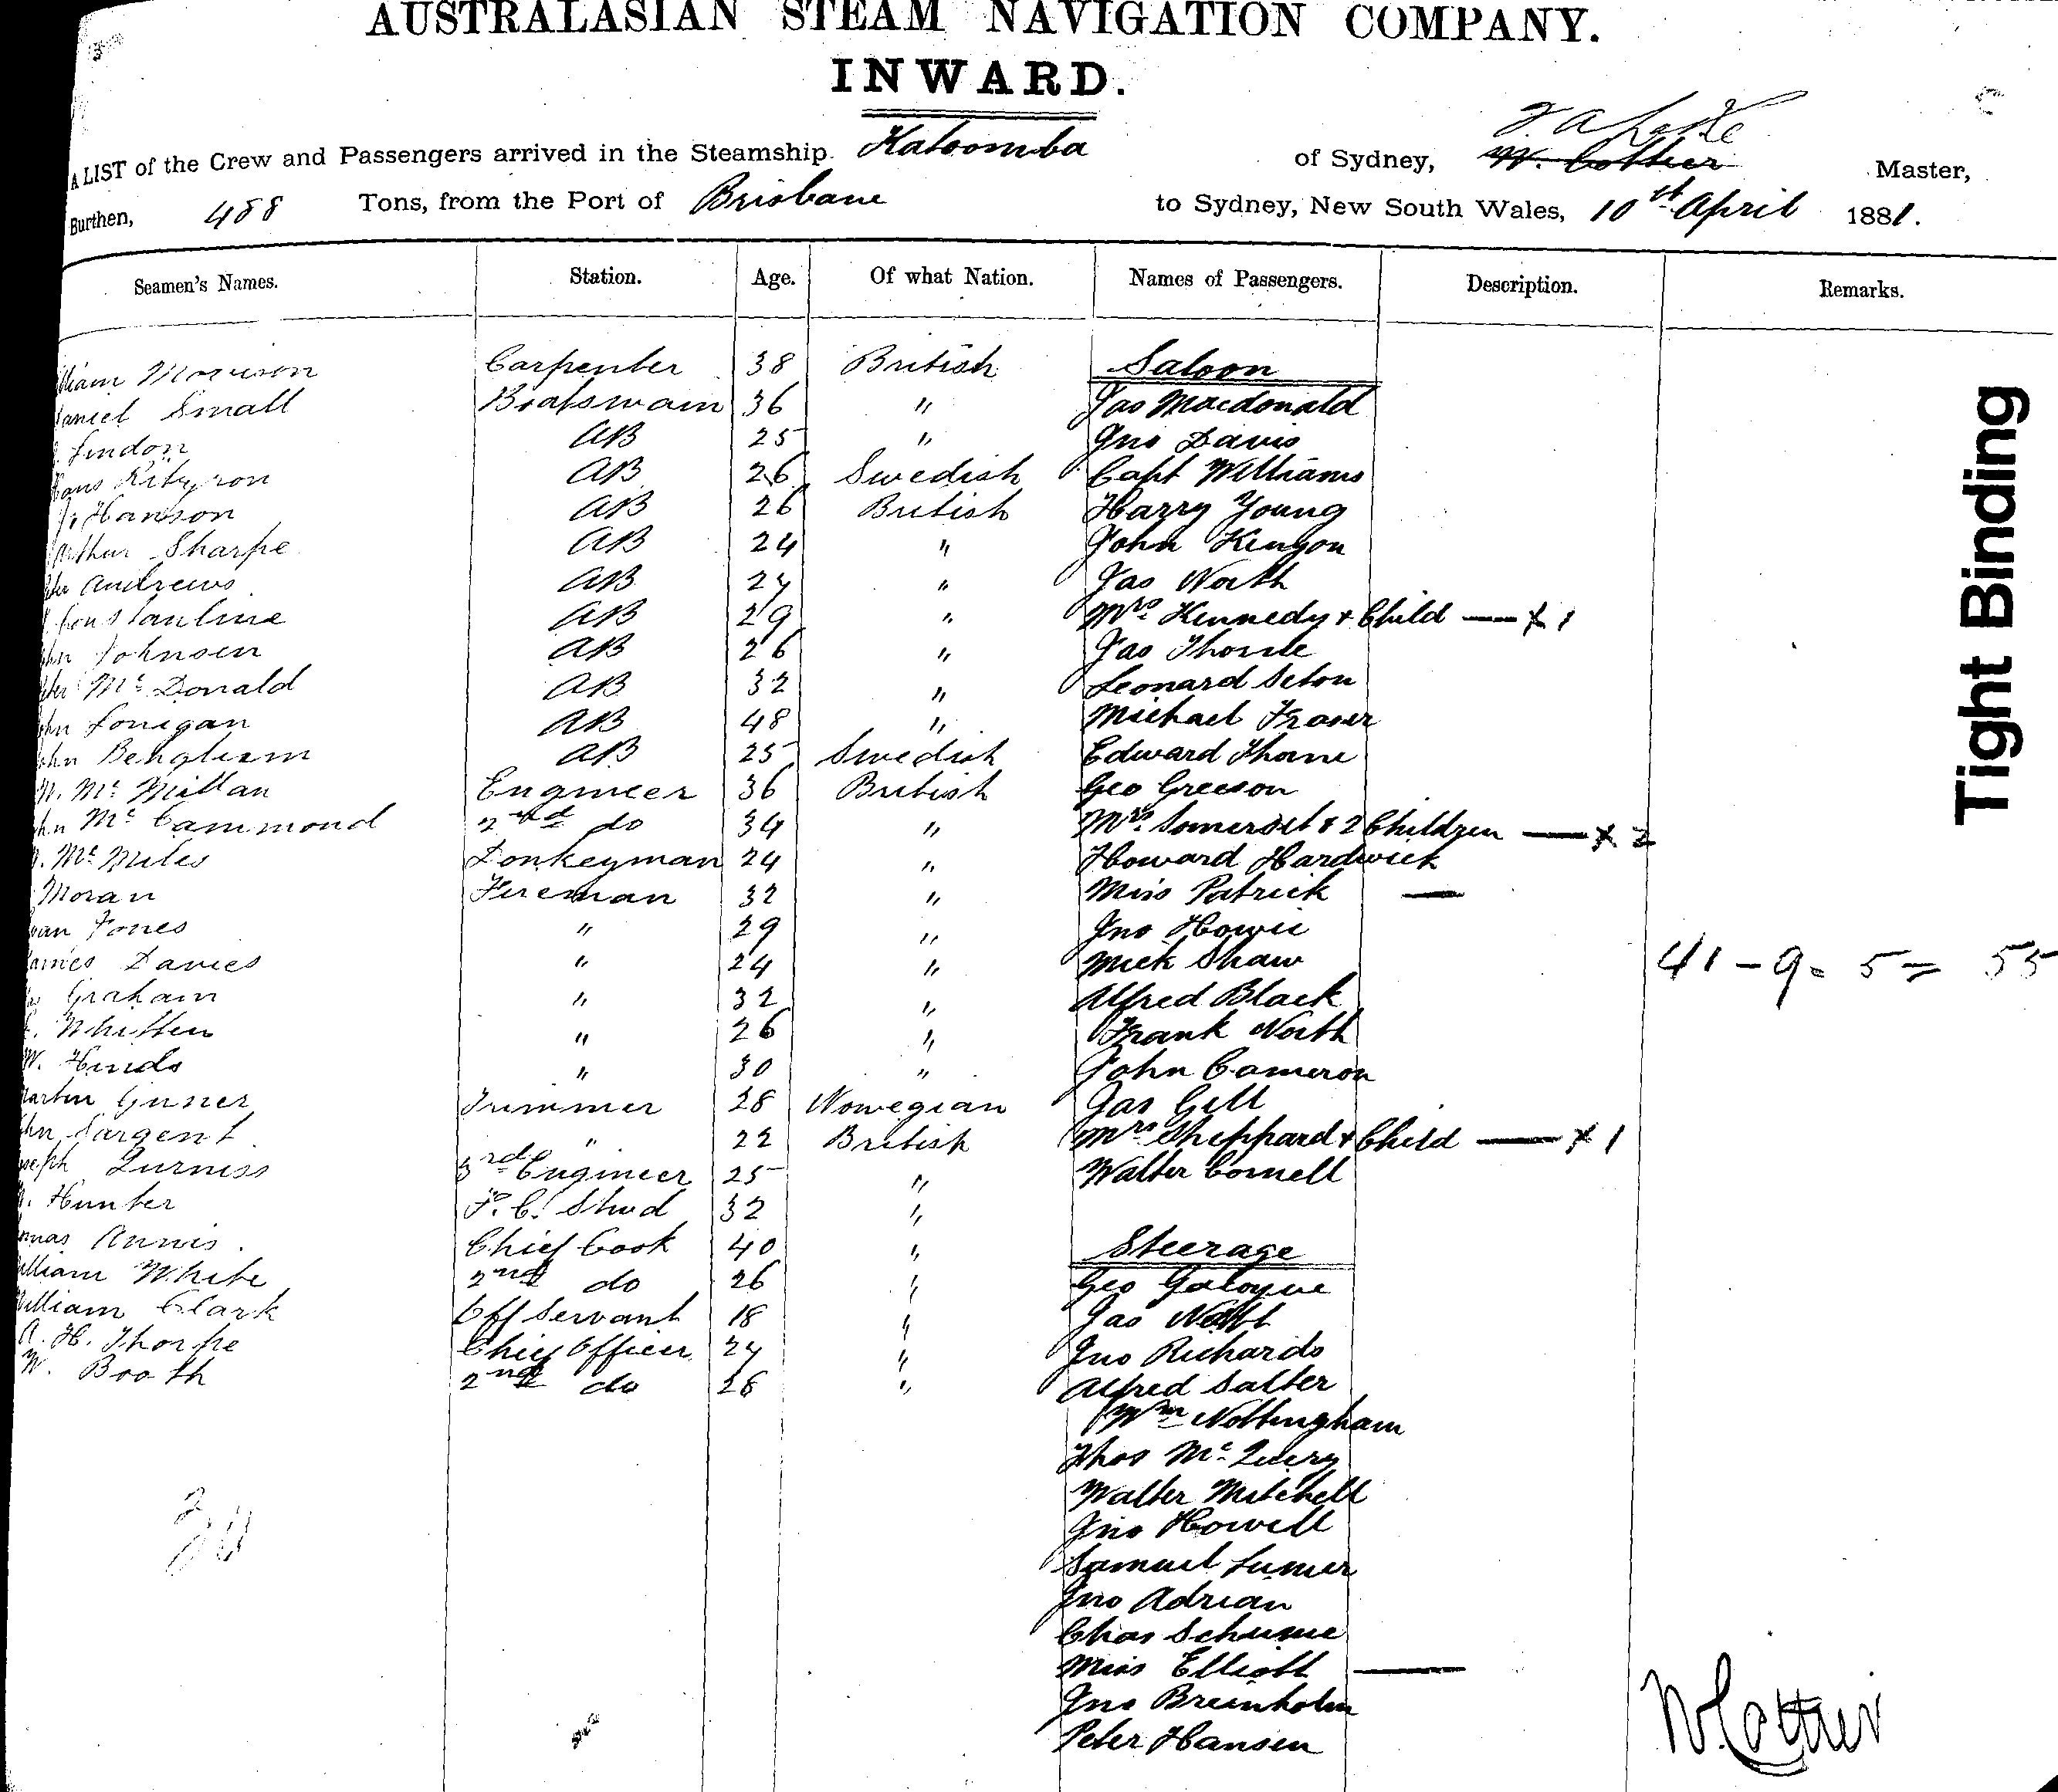 AUSTRALASIAN STEAM NAVIGATION COMPANY.
INWARD.
A LIST of the Crew and Passengers arrived in the Steamship Katoomba of Sydney, W. Cottier Master,
Burthen, 488 Tons, from the Port of Brisbane to Sydney, New South Wales, 10th April 1881.
Seamen's Names. Station. Age. Of what Nation. Names of Passengers. Description. Remarks.
lliam Morrison Carpenter 38 British Saloon
aniel Small Boatswain 36 " Jas Macdonald
Lindon AB 25 " Jno Davis
AB 26 Swedish Capt Williams
Hanson AB 26 British Harry Young
Arthur Sharpe AB 24 " John Kenyon
Andrews AB 24 " Jas North
Constantine AB 29 " Mrs Kennedy & Child — x 1
hn Johnsen AB 26 " Jas
eter McDonald AB 32 " Leonard Seton
ohn Lonigan AB 48 " Michael Fraser
ohn AB 25 Swedish Edward Thorne
McMillan Engineer 36 British Geo Greeson
hn McCammond 2nd do 34 " Mrs Somerset & 2 Children — x 2
McMiles Donkeyman 24 " Howard Hardwick
Moran Fireman 32 " Miss Patrick —
van Jones " 29 " Jno Howie
ames Davies " 24 " Mick Shaw 41 - 9 = 5 = 55
Graham " 32 " Alfred Black
Whitten " 26 " Frank North
W. Hinds " 30 " John Cameron
artin Trimmer 28 Nowegian Jas Gill
hn Sargent " 22 British Mrs Sheppard & Child — x 1
seph 3rd Engineer 25 " Walter Cornell
Hunter F. C. Stwd 32 "
omas Annis Chief Cook 40 " Steerage
illiam White 2nd do 26 " Geo
illiam Clark Off Servant 18 " Jas
A. H. Thorpe Chief Officer 24 " Jno Richards
W. Booth 2nd do 26 " Alfred Salter
Wm Nottingham
Thos
Walter Mitchell
Jno Howell
Samuel
Jno Adrian
Chas
Miss Elliott —
Jno Breinholm
Peter Hansen
W Cottier
Tight Binding